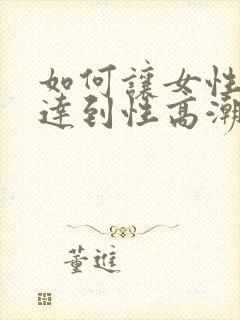 如何讓女性
達到性高潮
董進